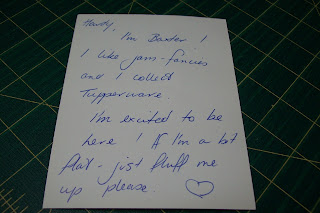 Howdy,
I'm Baxter !
I like jam-fancies
and I collect
Tupperware.
I'm excited to be
here ! If I'm a bit
flat - just fluff me
up please. ♡